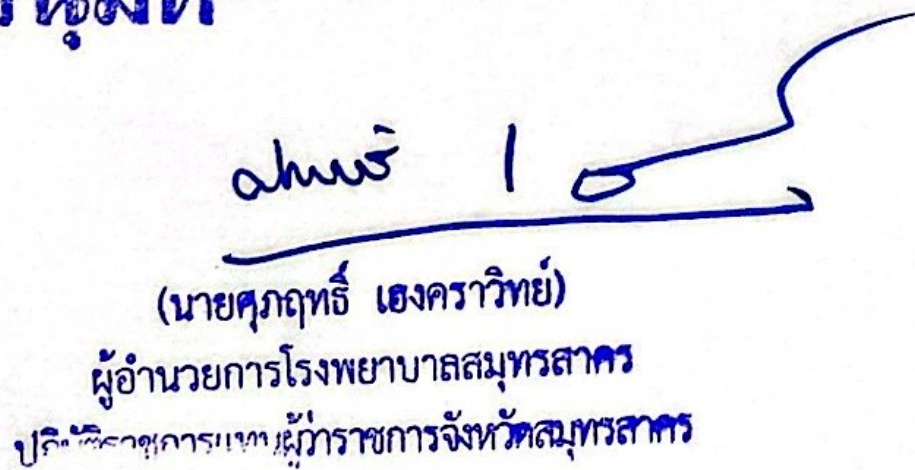 (นายศุภฤทธิ์ เฮงคราวิทย์)
ผู้อำนวยการโรงพยาบาลสมุทรสาคร
ปฏิบัติราชการแทนผู้ว่าราชการจังหวัดสมุทรสาคร